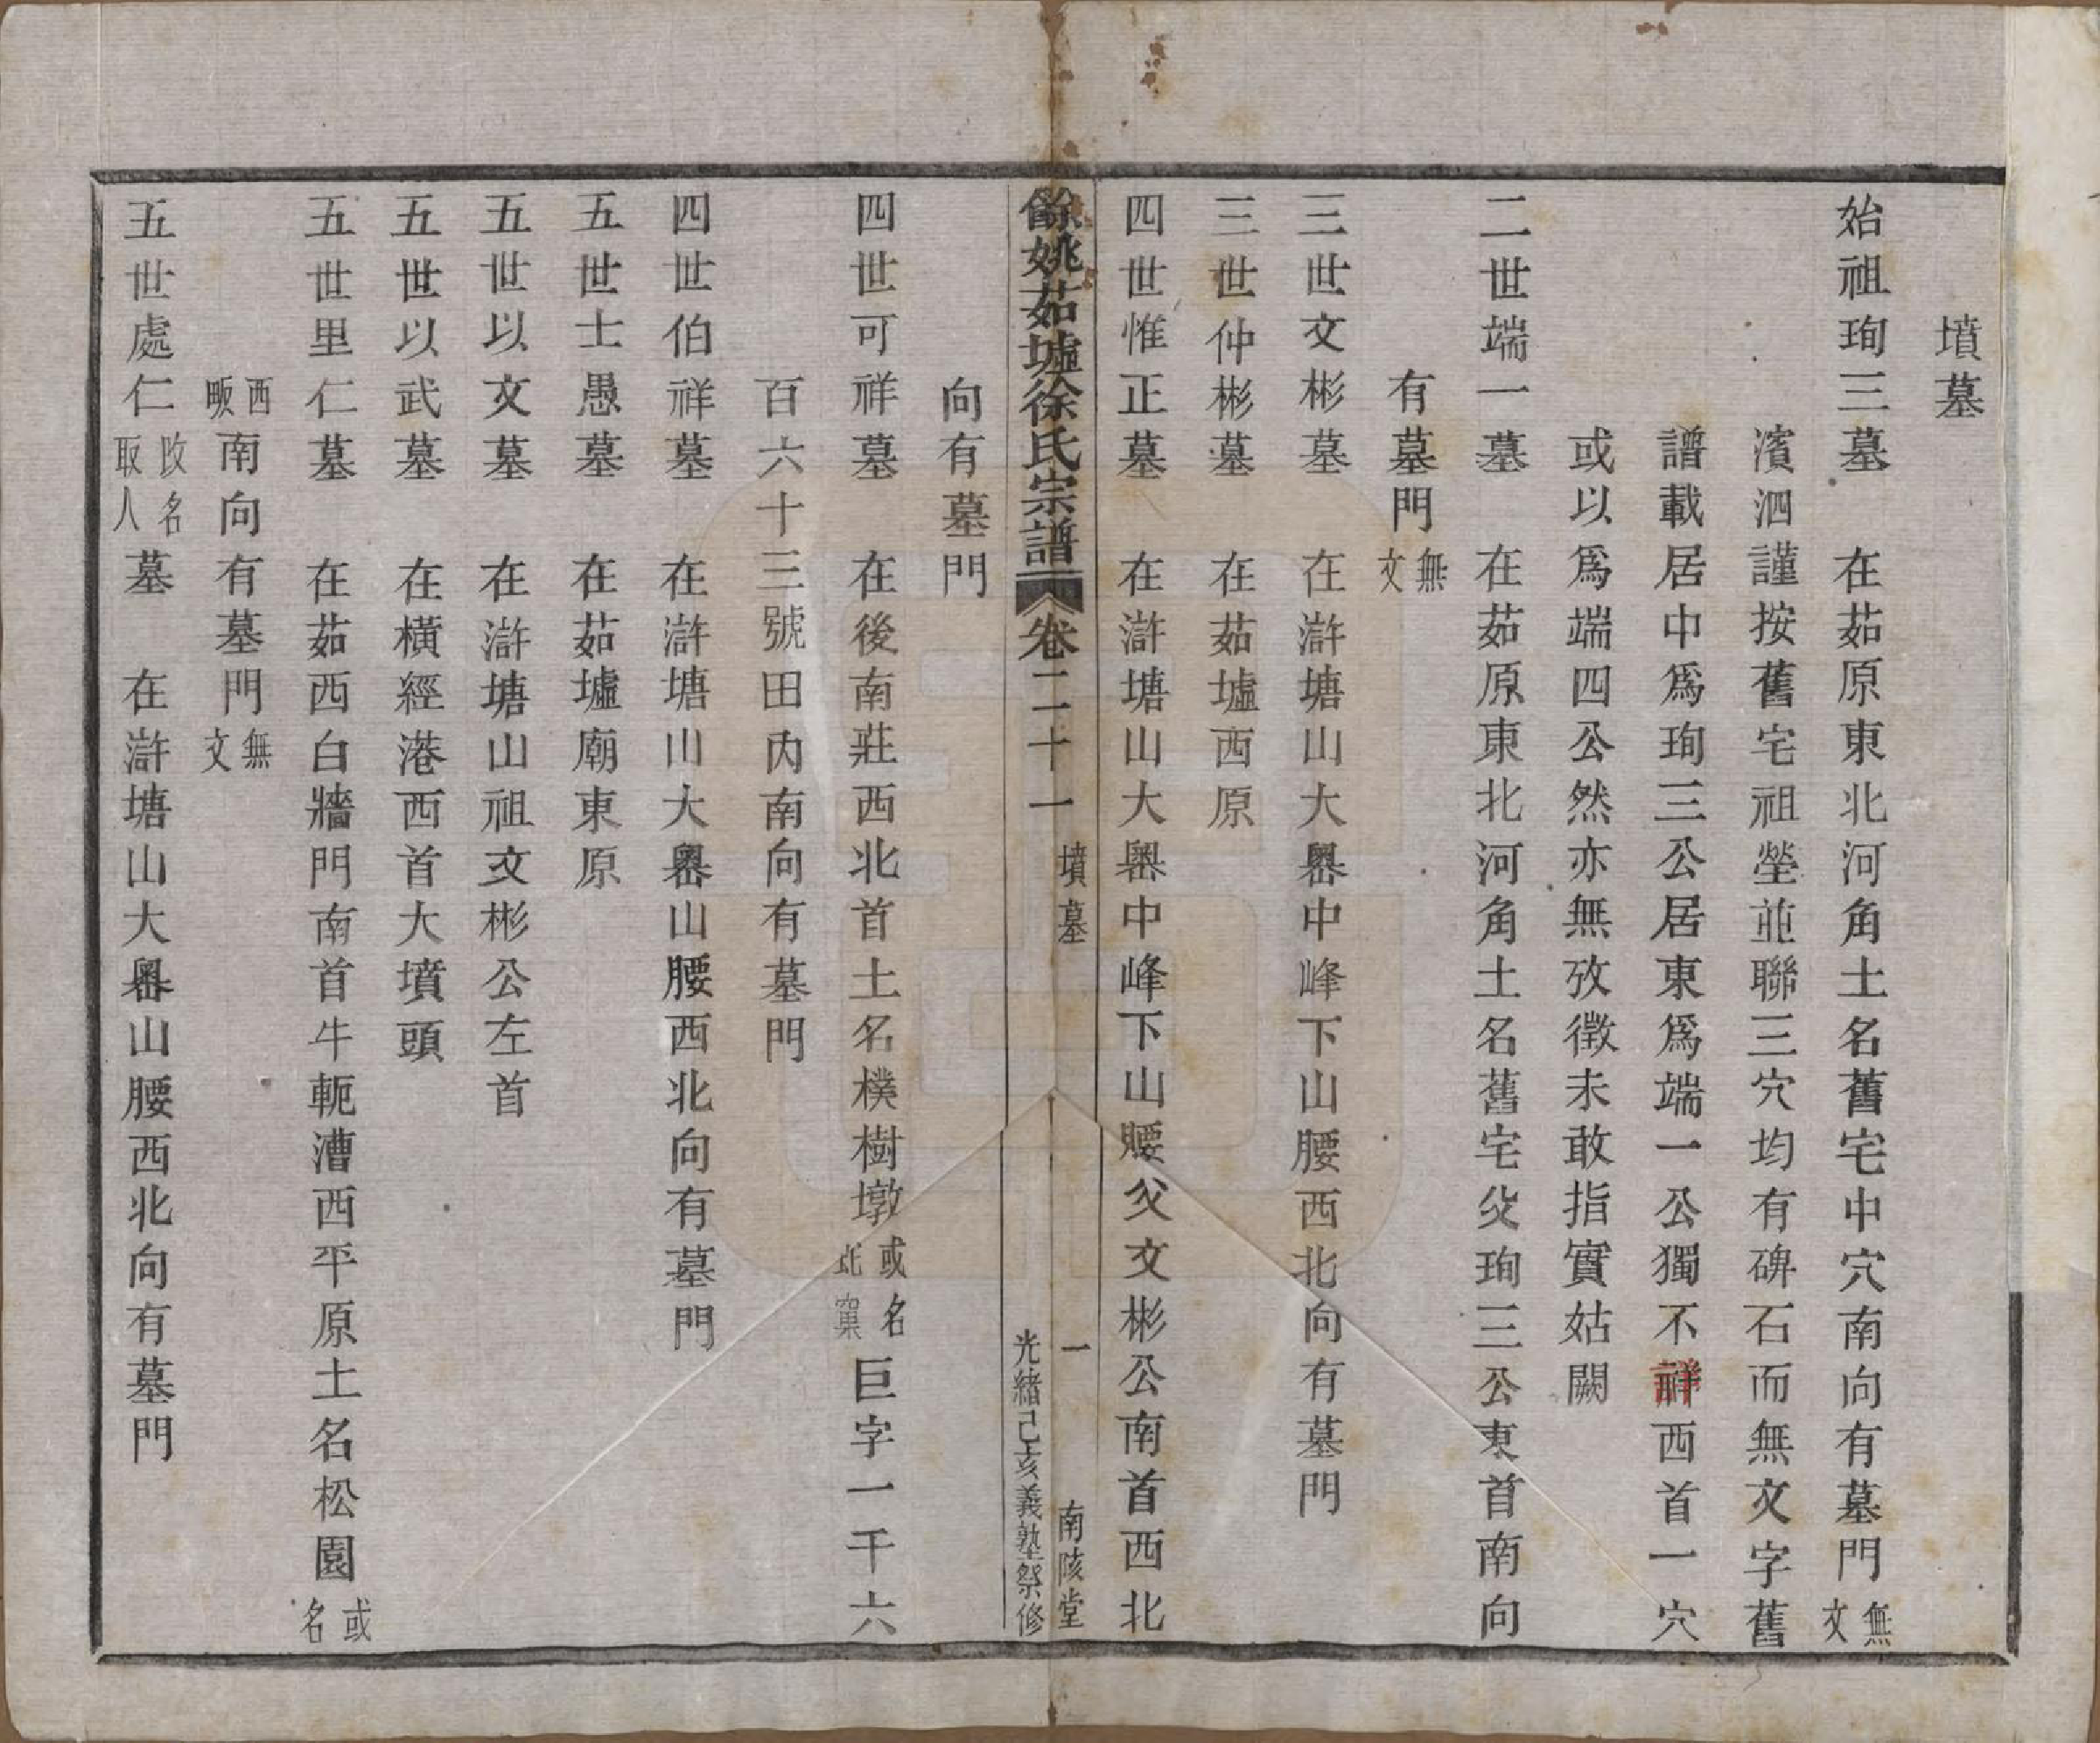 墳墓
始祖珣三墓　在茹原東北河角土名舊宅中穴南向有墓門無文
濱泗謹按舊宅祖塋並聯三穴均有碑石而無文字舊
譜載居中爲珣三公居東爲端一公獨不詳西首一穴
或以爲端四公然亦無攷徵未敢指實姑闕
二世端一墓　在茹原東北河角土名舊宅父珣三公東首南向
有墓門無文
三世文彬墓　在滸塘山大嶴中峰下山腰西北向有墓門
三世仲彬墓　在茹墟西原
四世惟正墓　在滸塘山大嶴中峰下山腰父文彬公南首西北
餘姚茹墟徐氏宗譜　卷二十一　墳墓　一　南陔堂
光緒己亥義塾祭修
向有墓門
四世可祥墓　在後南莊西北首土名樸樹墩或名北窠巨字一千六
百六十三號田內南向有墓門
四世伯祥墓　在滸塘山大嶴山腰西北向有墓門
五世士愚墓　在茹墟廟東原
五世以文墓　在滸塘山祖文彬公左首
五世以武墓　在橫經港西首大墳頭
五世里仁墓　在茹西白牆門南首牛軛漕西平原土名松園或名
西畈南向有墓門無文
五世處仁改名取人墓　在滸塘山大嶴山腰西北向有墓門